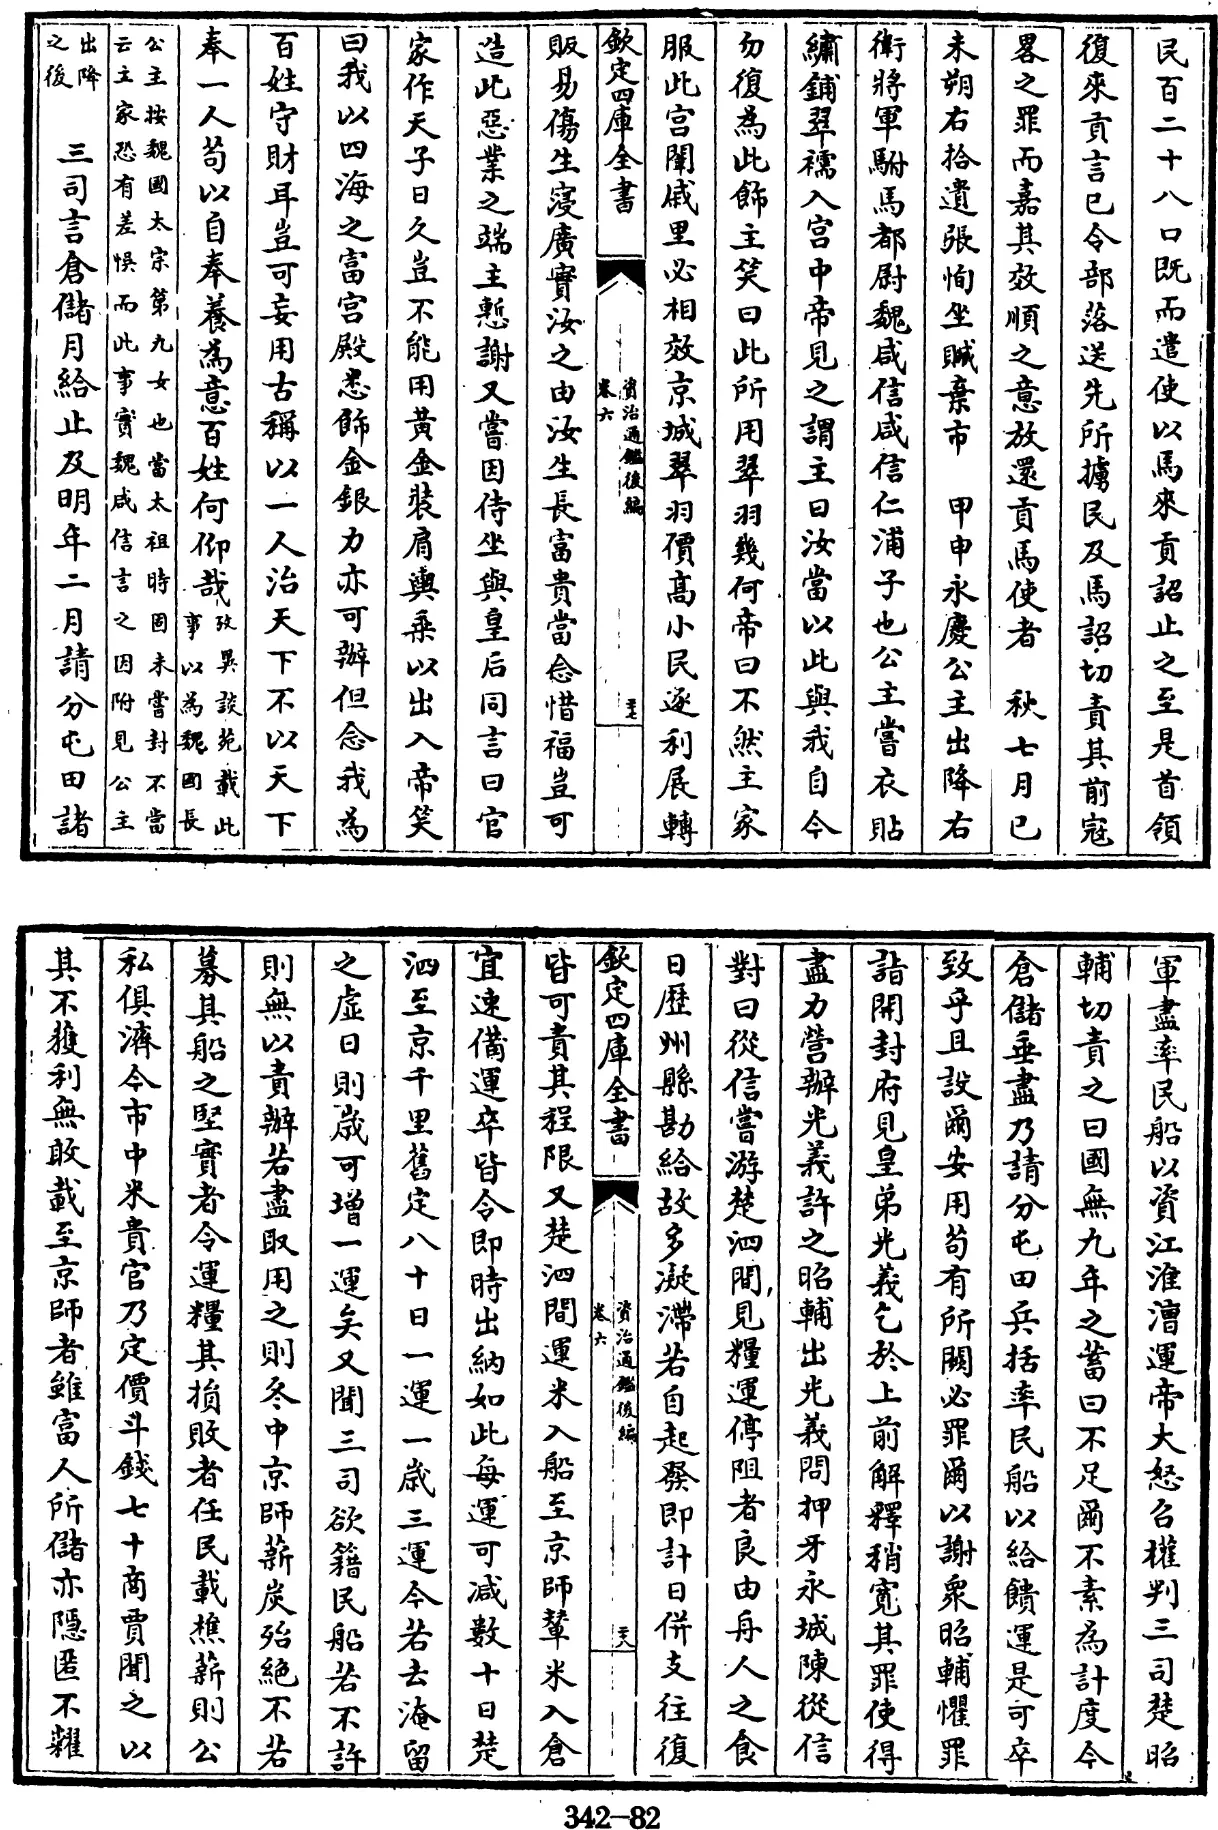 民百二十八口既而遣使以馬來貢詔止之至是首領
復來貢言已令部落送先所擄民及馬詔切責其前寇
畧之罪而嘉其效順之意放還貢馬使者　秋七月已
未朔右拾遺張恂坐贓棄市　甲申永慶公主出降右
衛將軍駙馬都尉魏咸信咸信仁浦子也公主嘗衣貼
繡鋪翠襦入宫中帝見之謂主曰汝當以此與我自今
勿復為此飾主笑曰此所用翠羽幾何帝曰不然主家
服此宫闈戚里必相效京城翠羽價髙小民逐利展轉
欽定四庫全書
資治通鑑後編
卷六
三十七
販易傷生寖廣實汝之由汝生長富貴當念惜福豈可
造此惡業之端主慙謝又嘗因侍坐與皇后同言曰官
家作天子日久豈不能用黄金裝肩輿乗以出入帝笑
曰我以四海之富宫殿悉飾金銀力亦可辦但念我為
百姓守財耳豈可妄用古稱以一人治天下不以天下
奉一人苟以自奉養為意百姓何仰哉攷異談苑載此
事以為魏國長
公主按魏國太宗第九女也當太祖時固未嘗封不當
云主家恐有差悞而此事實魏咸信言之因附見公主
出降
之後　三司言倉儲月給止及明年二月請分屯田諸
軍盡率民船以資江淮漕運帝大怒召權判三司楚昭
輔切責之曰國無九年之蓄曰不足爾不素為計度今
倉儲垂盡乃請分屯田兵括率民船以給饋運是可卒
致乎且設爾安用苟有所闕必罪爾以謝衆昭輔懼罪
詣開封府見皇弟光義乞於上前解釋稍寛其罪使得
盡力營辦光義許之昭輔出光義問押牙永城陳從信
對曰從信嘗游楚泗間見糧運停阻者良由舟人之食
日歷州縣勘給故多凝滯若自起發即計日併支往復
欽定四庫全書
資治通鑑後編
卷六
三十八
皆可責其程限又楚泗間運米入船至京師輦米入倉
宜速備運卒皆令即時出納如此每運可减數十日楚
泗至京千里舊定八十日一運一歳三運今若去淹留
之虚日則歳可增一運矣又聞三司欲籍民船若不許
則無以責辦若盡取用之則冬中京師薪炭殆絶不若
募其船之堅實者令運糧其損敗者任民載樵薪則公
私俱濟今市中米貴官乃定價斗錢七十商賈聞之以
其不獲利無敢載至京師者雖富人所儲亦隱匿不糶
342-82